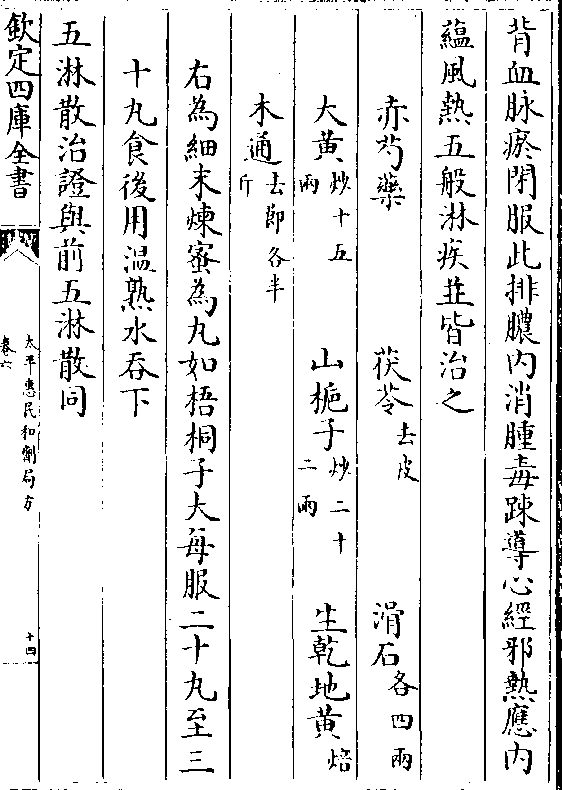 背血脉瘀閉服此排膿内消腫毒踈導心經邪熱應内
藴風熱五般淋疾並皆治之
赤芍藥　茯苓去皮　滑石各四兩
大黄炒十五兩　山梔子炒二十二兩　生乾地黄焙
木通去節各半斤
右為細末煉蜜為丸如梧桐子大每服二十九至三
十丸食後用温熟水吞下
五淋散治證與前五淋散同
欽定四庫全書
太平惠民和劑局方
卷六
十四